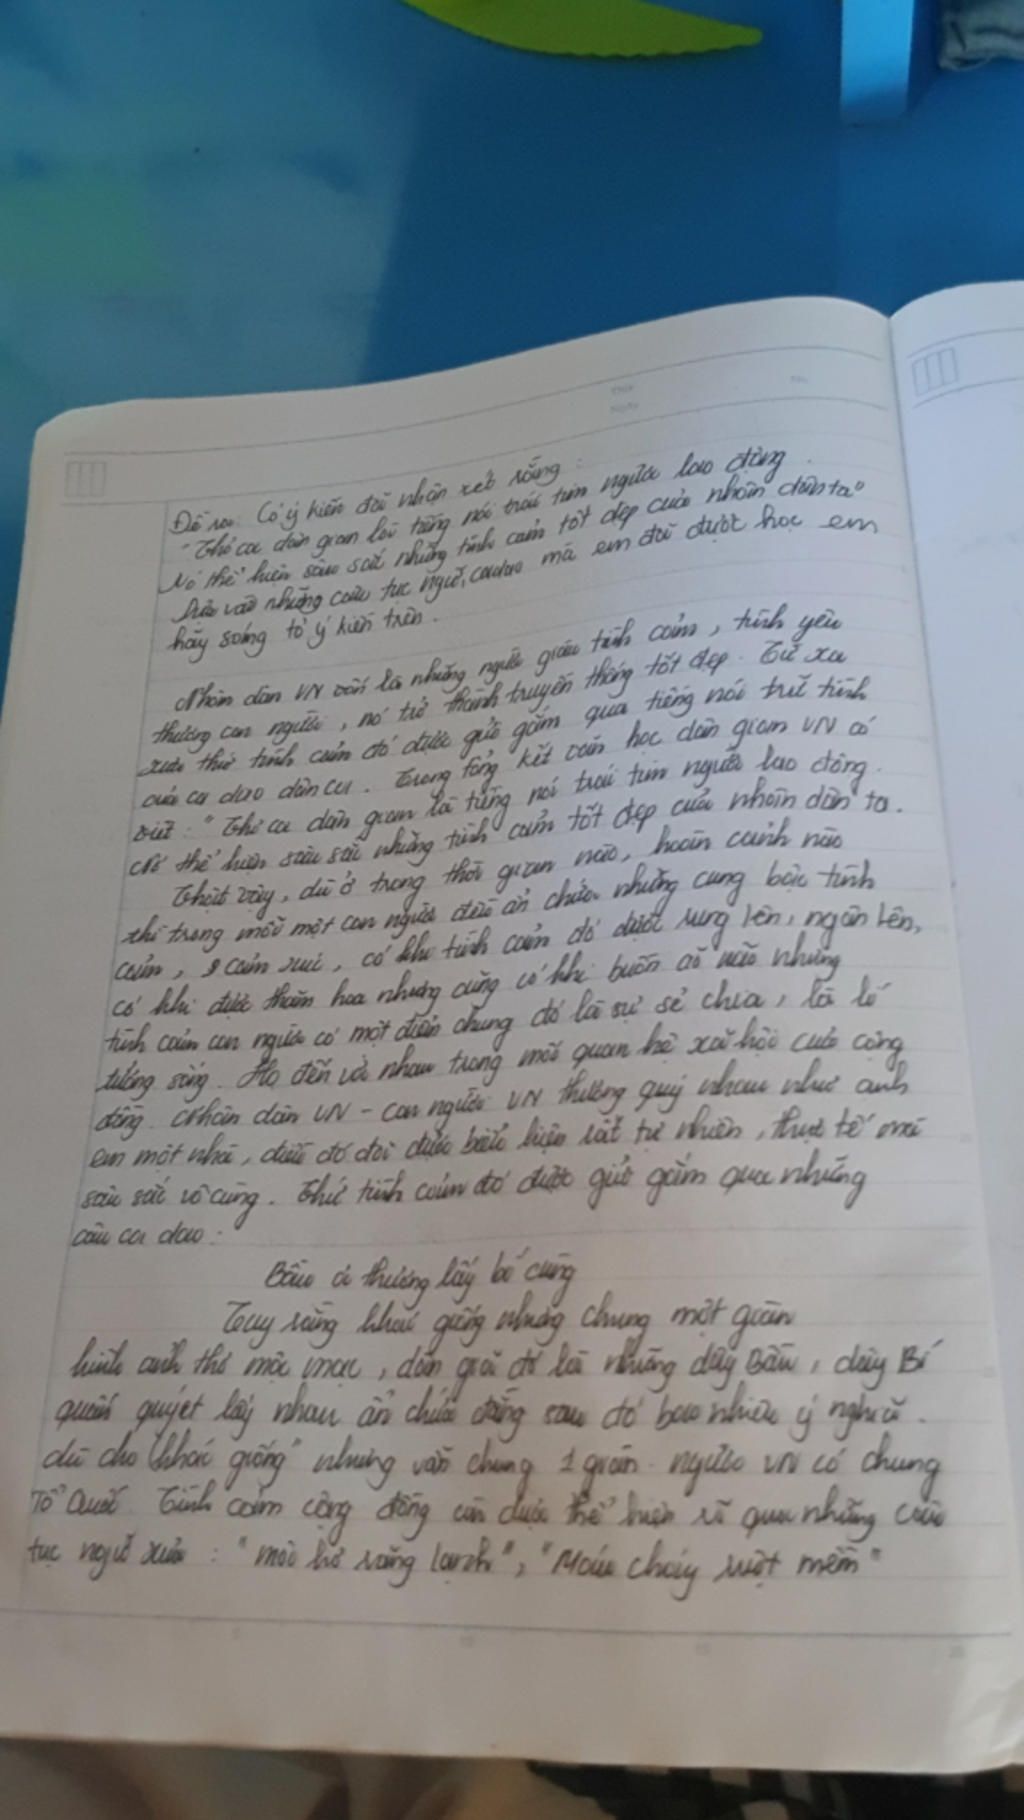 Đề ra: Có ý kiến đã nhận xét rằng:
"Thơ ca dân gian là tiếng nói trái tim người lao động.
Nó thể hiện sâu sắc những tình cảm tốt đẹp của nhân dân ta"
Dựa vào những câu tục ngữ, ca dao mà em đã được học em
hãy sáng tỏ ý kiến trên.
Nhân dân VN vốn là những người giàu tình cảm, tình yêu
thương con người, nó trở thành truyền thống tốt đẹp. Từ xa
xưa thứ tình cảm đó được gửi gắm qua tiếng nói trữ tình
của ca dao dân ca. Trong tổng kết văn học dân gian VN có
viết: "Thơ ca dân gian là tiếng nói trái tim người lao động.
Nó thể hiện sâu sắc những tình cảm tốt đẹp của nhân dân ta.
Thật vậy, dù ở trong thời gian nào, hoàn cảnh nào
thì trong mỗi một con người đều ẩn chứa những cung bậc tình
cảm, cảm xúc, có khi tình cảm đó được rung lên, ngân lên,
có khi được thăm hoa nhưng cũng có khi buồn não nhưng
tình cảm con người có một điểm chung đó là sự sẻ chia, là lẽ
tưởng sống. Họ đến với nhau trong mối quan hệ xã hội của cộng
đồng. Nhân dân VN - con người VN thương quý nhau như anh
em một nhà, điều đó đã được biểu hiện rất tự nhiên, thực tế mà
sâu sắc vô cùng. Thứ tình cảm đó được gửi gắm qua những
câu ca dao:
Bầu ơi thương lấy bí cùng
Tuy rằng khác giống nhưng chung một giàn
hình ảnh thơ mộc mạc, dân giã đó là những dây Bầu, dây Bí
quấn quýt lấy nhau ẩn chứa đằng sau đó bao nhiêu ý nghĩa.
dù cho "khác giống" nhưng vẫn chung 1 giàn. người VN có chung
Tổ Quốc. Tình cảm cộng đồng còn được thể hiện rõ qua những câu
tục ngữ xưa: "môi hở răng lạnh", "Máu chảy ruột mềm"